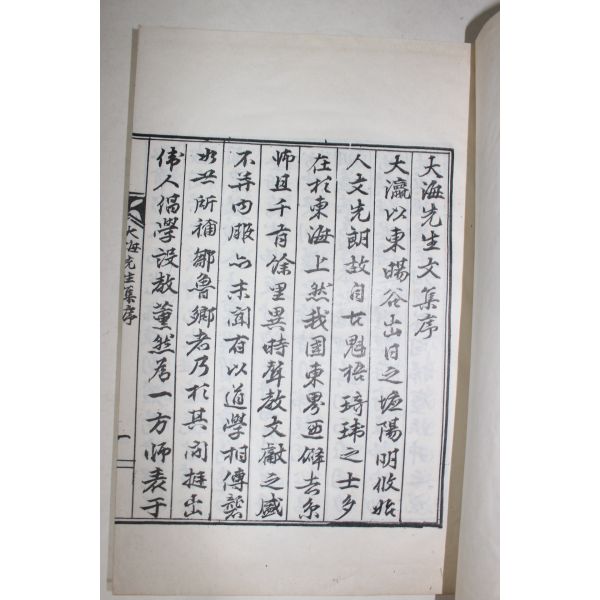 大海先生文集序
大瀛以東暘谷出日之墟陽明攸始
人文先朗故自古魁梧琦瑋之士多
在於東海上然我國東界西僻去京
師且千有餘里異時聲教文獻之盛
不弄內服而未聞有以道學相傳襲
如世所稱鄒魯鄉者乃於其間挺出
偉人倡學設教薰然爲一方師表于
大海先生集序
一